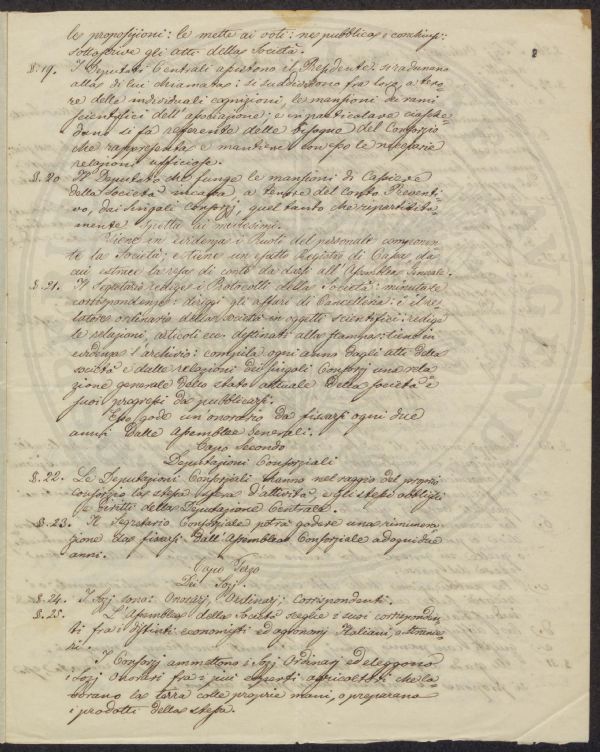 le proposizioni: le mette ai voti: ne pubblica i conchiusi:
sottoscrive gli atti della Società.
§. 19. I Deputati Centrali assistono il Presidente: si radunano
alla di lui chiamata: si suddividono fra loro, a teno-
re delle individuali cognizioni, le mansioni de rami
scientifici dell'associazione; e in particolare ciasche-
duno si fà referente delle bisogne del Consorzio
che rappresenta e mantiene con esso le necessarie
relazioni officiose.
§. 20. Il Deputato che funge le mansioni di Cassiere
della Società incassa, a tenore del Conto Preventi-
vo, dai singoli Consorzj, quel tanto che ripartitita-
mente spetta ai medesimi.
Tiene in evidenza i Ruoli del personale componen-
te la Società; e tiene un esatto Registro di Cassa da
cui estrae la resa di conto da darsi all'Assemblea Generale.
§. 21. Il Segretario redige i Protocolli della Società: minuta le
corrispondenze: dirigge gli affari di Cancelleria: è il re-
latore ordinario della società in oggetti scientifici: redige
le relazioni, articoli ecc. destinati alla stampa: tiene in
evidenza l'archivio: compila ogni anno dagli atti della
società e dalle relazioni dei singoli Consorzj una rela-
zione generale dello stato attuale della società e
suoi progressi da pubblicarsi.
Esso gode un'onorario da fissarsi ogni due
anni dalle Assemblee Generali.
Capo Secondo
Deputazioni Consorziali
§. 22. Le Deputazioni Consorziali hanno nel raggio del proprio
consorzio la stessa sfera d'attività, e gli stessi obblighi
e diritti della Deputazione Centrale.
§. 23. Il Segretario Consorziale potrà godere una rimunera-
zione da fissarsi dall'Assemblea Consorziale ad ogni due
anni.
Capo Terzo
Dei Sozj.
§. 24. I Sozj sono: Onorarj, Ordinarj, Corrispondenti.
§. 25. L'Assemblea della Società sceglie i suoi corrisponden-
ti fra i distinti economisti ed agronomi Italiani, e stranie-
ri.
I Consorzj ammettono i Sozj Ordinarj ed eleggono
i Sozj Onorarj fra i più esperti agricoltori che la-
vorano la terra colle proprie mani, o preparano
i prodotti della stessa.